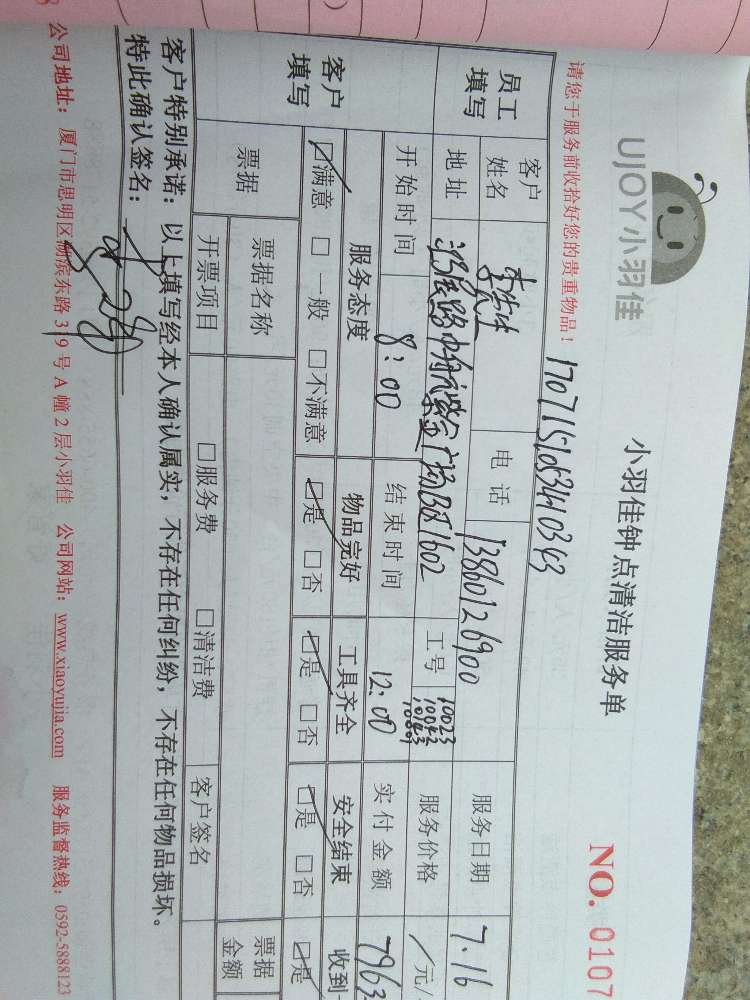 UJOY小羽佳
小羽佳钟点清洁服务单
NO. 0107
请您于服务前收拾好您的贵重物品！
员工填写
客户姓名
电话 13860126900
服务日期 7.16
地址
1602
工号 10023
服务价格 /元/
开始时间 8:00
结束时间 12:00
实付金额 7963
客户填写
服务态度
物品完好
工具齐全
安全结束
收到
☑满意 □一般 □不满意
☑是 □否
☑是 □否
☑是 □否
☑是
票据
票据名称
票据金额
开票项目
□服务费 □清洁费
客户签名
客户特别承诺：以上填写经本人确认属实，不存在任何纠纷，不存在任何物品损坏。
特此确认签名：
公司地址：厦门市思明区湖滨东路319号A幢2层小羽佳 公司网站：www.xiaoyujia.com 服务监督热线：0592-5888123